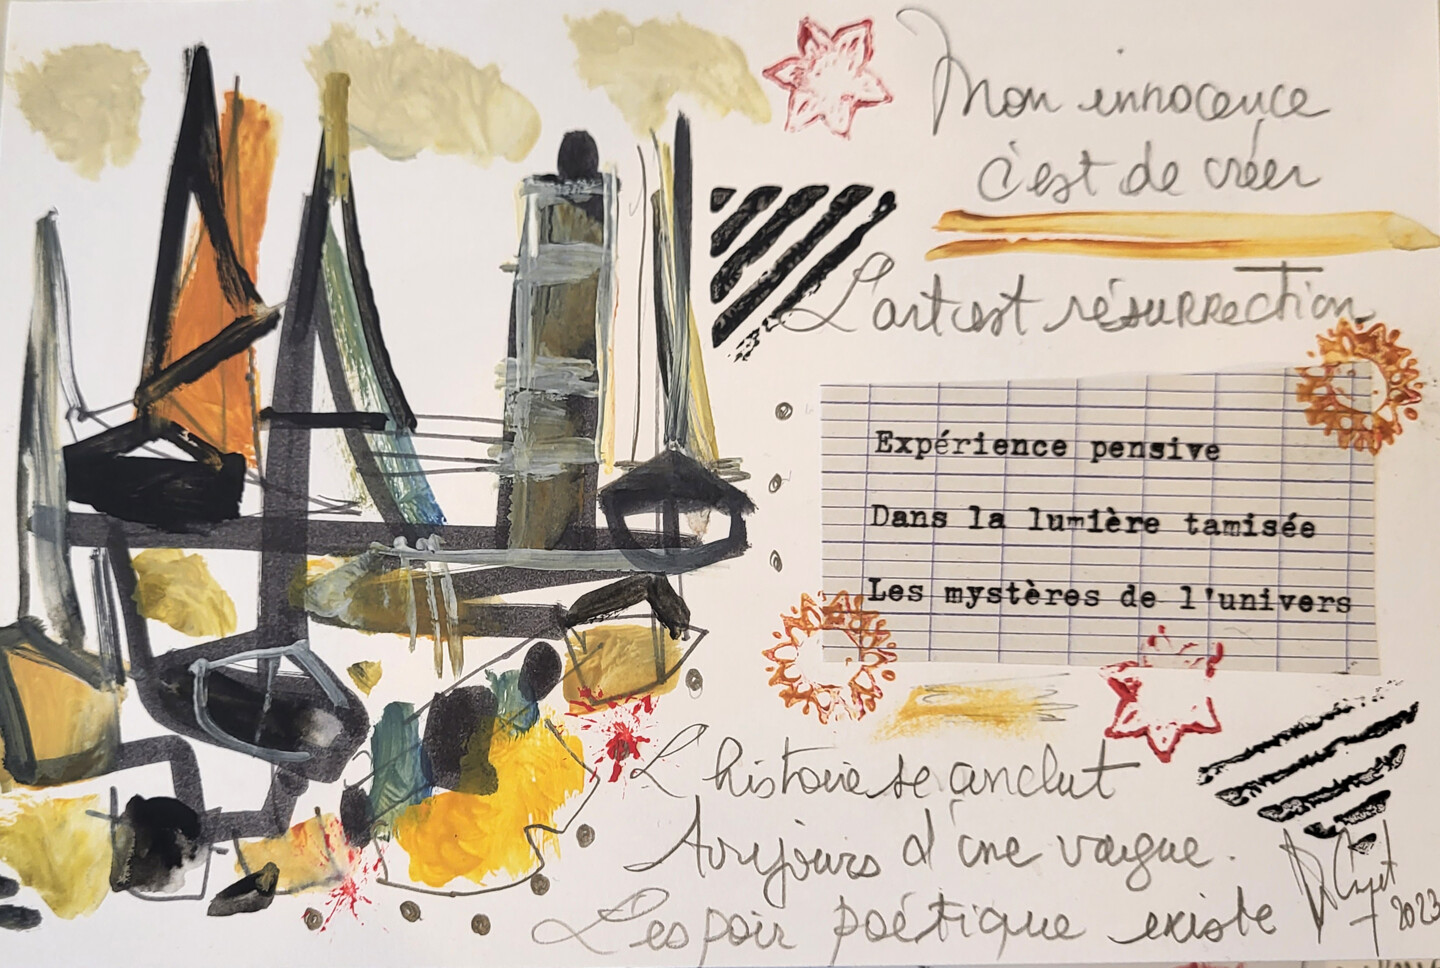 Mon innocence
c'est de créer
L'art est résurrection.
Expérience pensive
Dans la lumière tamisée
Les mystères de l'univers
L'histoire se conclut
Toujours d'une vague.
L'espoir poétique existe
2023